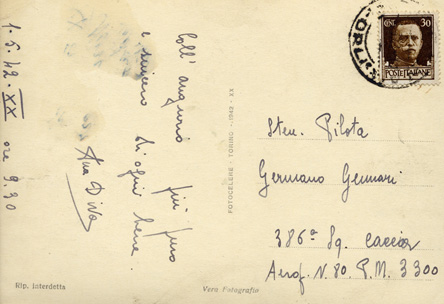 1.5.42-XX ore 9.30
Coll'augurio più puro
e sincero di ogni bene.
FOTOCELERE - TORINO - 1942 - XX
CENT. 30
POSTE ITALIANE
Sten. Pilota
Germano Gennari
386ª Sq. Caccia
Aerop. N. 80 P.M. 3300
Rip. interdetta
Vera Fotografia